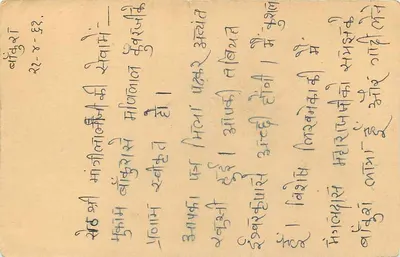 बाँकुरा
२८-४-६२.
सेठ श्री मांगीलालजी की सेवामें —
मुकाम बाँकुरासे मणिलाल कुँवरजीके
प्रणाम स्वीकृत हो।
आपका पत्र मिला पढ़कर अत्यंत
खुशी हुई। आपकी तबियत
ईश्वरकृपासे अच्छी होगी। मैं कुशल
हूँ। विशेष लिखनेका की मैं
मंगलदास महाराजजीको समझाके
बाँकुरा लाया हूँ और गाड़ी लेने